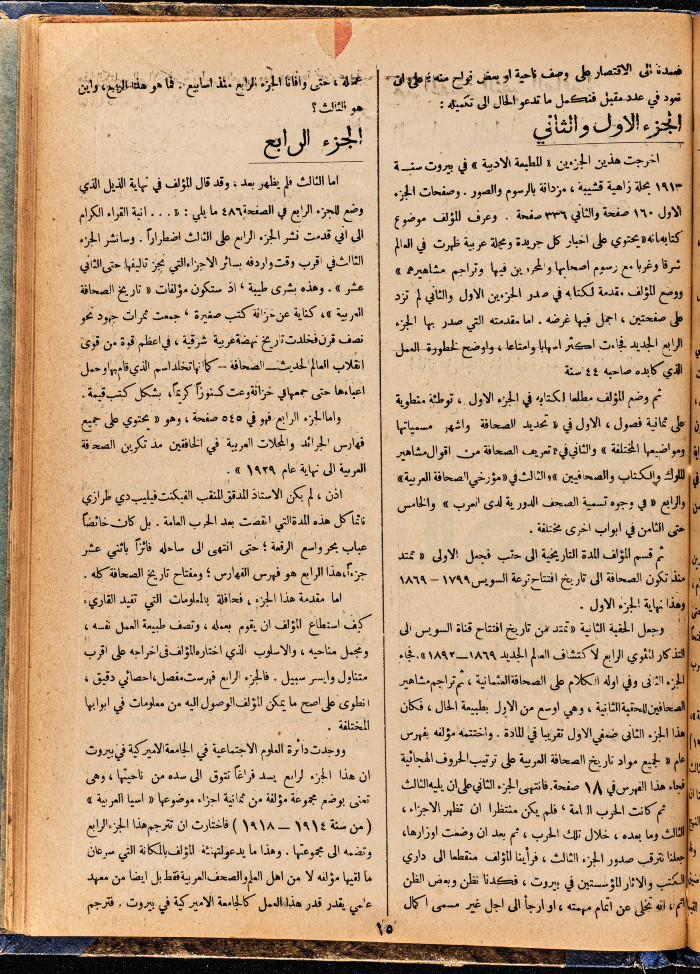 فعمدنا الى الاقتصار على وصف ناحية او بعض نواح منه ، على ان
نعود في عدد مقبل فنكمل ما تدعو الحال الى تكميله :
الجزء الاول والثاني
اخرجت هذين الجزءين « المطبعة الادبية » في بيروت سنة
١٩١٣ بحلة زاهية قشيبة ، مزدانة بالرسوم والصور . وصفحات الجزء
الاول ١٦٠ صفحة والثاني ٣٣٦ صفحة . وعرف المؤلف موضوع
كتابه بانه « يحتوي على اخبار كل جريدة ومجلة عربية ظهرت في العالم
شرقا وغربا مع رسوم اصحابها والمحررين فيها وتراجم مشاهيرهم »
ووضع المؤلف مقدمة لكتابه في صدر الجزءين الاول والثاني لم تزد
على صفحتين ، اجمل فيها غرضه . اما مقدمته التي صدر بها الجزء
الرابع الجديد فجاءت اكثر اسهابا وامتاعا ، واوضح لخطورة العمل
الذي كابده صاحبه ٤٤ سنة
ثم وضع المؤلف مطلعا لكتابه في الجزء الاول ، توطئة منطوية
على ثمانية فصول ، الاول في « تحديد الصحافة واشهر مسمياتها
ومواضيعها المختلفة » والثاني في « تعريف الصحافة من اقوال مشاهير
الملوك والكتاب والصحافيين » والثالث في « مؤرخي الصحافة العربية »
والرابع « في وجوه تسمية الصحف الدورية لدى العرب » والخامس
حتى الثامن في ابواب اخرى مختلفة .
ثم قسم المؤلف المدة التاريخية الى حقب فجعل الاولى « تمتد
منذ تكون الصحافة الى تاريخ افتتاح ترعة السويس ١٧٩٩ – ١٨٦٩
وهذا نهاية الجزء الاول .
وجعل الحقبة الثانية « تمتد من تاريخ افتتاح قناة السويس الى
التذكار المئوي الرابع لاكتشاف العالم الجديد ١٨٦٩ – ١٨٩٢ » . فجاء
الجزء الثاني وفي اوله الكلام على الصحافة العثمانية ، ثم تراجم مشاهير
الصحافيين للحقبة الثانية ، وهي اوسع من الاول بطبيعة الحال ، فكان
هذا الجزء الثاني ضعفي الاول تقريبا في المادة . واختتمه مؤلفه بفهرس
عام « لجميع مواد تاريخ الصحافة العربية على ترتيب الحروف الهجائية
فجاء هذا الفهرس في ١٨ صفحة. فانتهى الجزء الثاني على ان يليه الثالث
ثم كانت الحرب العامة ، فلم يكن منتظرا ان تظهر الاجزاء ،
الثالث وما بعده ، خلال تلك الحرب ، ثم بعد ان وضعت اوزارها،
جعلنا نترقب صدور الجزء الثالث ، فرأينا المؤلف منقطعا الى داري
الكتب والاثار المؤسستين في بيروت ، فكدنا نظن وبعض الظن
اثم ، انه تخلى عن اتمام مهمته ، او ارجأ الى اجل غير مسمى اكمال
عمله ، حتى وافانا الجزء الرابع منذ اسابيع . فما هو هذا الرابع، واين
هو الثالث ؟
الجزء الرابع
اما الثالث فلم يظهر بعد ، وقد قال المؤلف في نهاية الذيل الذي
وضع للجزء الرابع في الصفحة ٤٨٦ ما يلي : « . . . انبه القراء الكرام
الى اني قدمت نشر الجزء الرابع على الثالث اضطراراً . وسانشر الجزء
الثالث في اقرب وقت واردفه بسائر الاجزاء التي نجز تاليفها حتى الثاني
عشر » . وهذه بشرى طيبة ؛ اذ ستكون مؤلفات « تاريخ الصحافة
العربية » ، كناية عن خزانة كتب صغيرة ، جمعت ثمرات جهود نحو
نصف قرن فخلدت تاريخ نهضة عربية شرقية ، في اعظم قوة من قوى
انقلاب العالم الحديث – الصحافة – كما انها تخلد اسم الذي قام بها وحمل
اعباءها حتى جمعها في خزانة وعت كنوزاً كريماً، بشكل كتب قيمة .
واما الجزء الرابع فهو في ٥٤٥ صفحة ، وهو « يحتوي على جميع
فهارس الجرائد والمجلات العربية في الخافقين مذ تكوين الصحافة
العربية الى نهاية عام ١٩٢٩ » .
اذن ، لم يكن الاستاذ المدقق المنقب الفيكنت فيليب دي طرازي
نائما كل هذه المدة التي انقضت بعد الحرب العامة . بل كان خائضاً
عباب بحر واسع الرقعة ؛ حتى انتهى الى ساحله فائزاً باثني عشر
جزءاً، هذا الرابع هو فهرس الفهارس ؛ ومفتاح تاريخ الصحافة كله .
اما مقدمة هذا الجزء ، فحافلة بالمعلومات التي تفيد القاريء
كيف استطاع المؤلف ان يقوم بعمله ، وتصف طبيعة العمل نفسه ،
ومجمل مناحيه ، والاسلوب الذي اختاره المؤلف في اخراجه على اقرب
متناول وايسر سبيل . فالجزء الرابع فهرست مفصل، احصائي دقيق ،
انطوى على اصح ما يمكن المؤلف الوصول اليه من معلومات في ابوابها
المختلفة .
ووجدت دائرة العلوم الاجتماعية في الجامعة الاميركية في بيروت
ان هذا الجزء الرابع يسد فراغاً تتوق الى سده من ناحيتها ، وهي
تعنى بوضع مجموعة مؤلفة من ثمانية اجزاء موضوعها « اسيا العربية »
( من سنة ١٩١٤ – ١٩١٨ ) فاختارت ان تترجم هذا الجزء الرابع
وتضمه الى مجموعتها . وهذا ما يدعو لتهنئة المؤلف بالمكانة التي سرعان
ما لقيها مؤلفه لا من اهل العلم والصحف العربية فقط بل ايضا من معهد
علمي يقدر قدر هذا العمل كالجامعة الاميركية في بيروت . فترجم
١٥